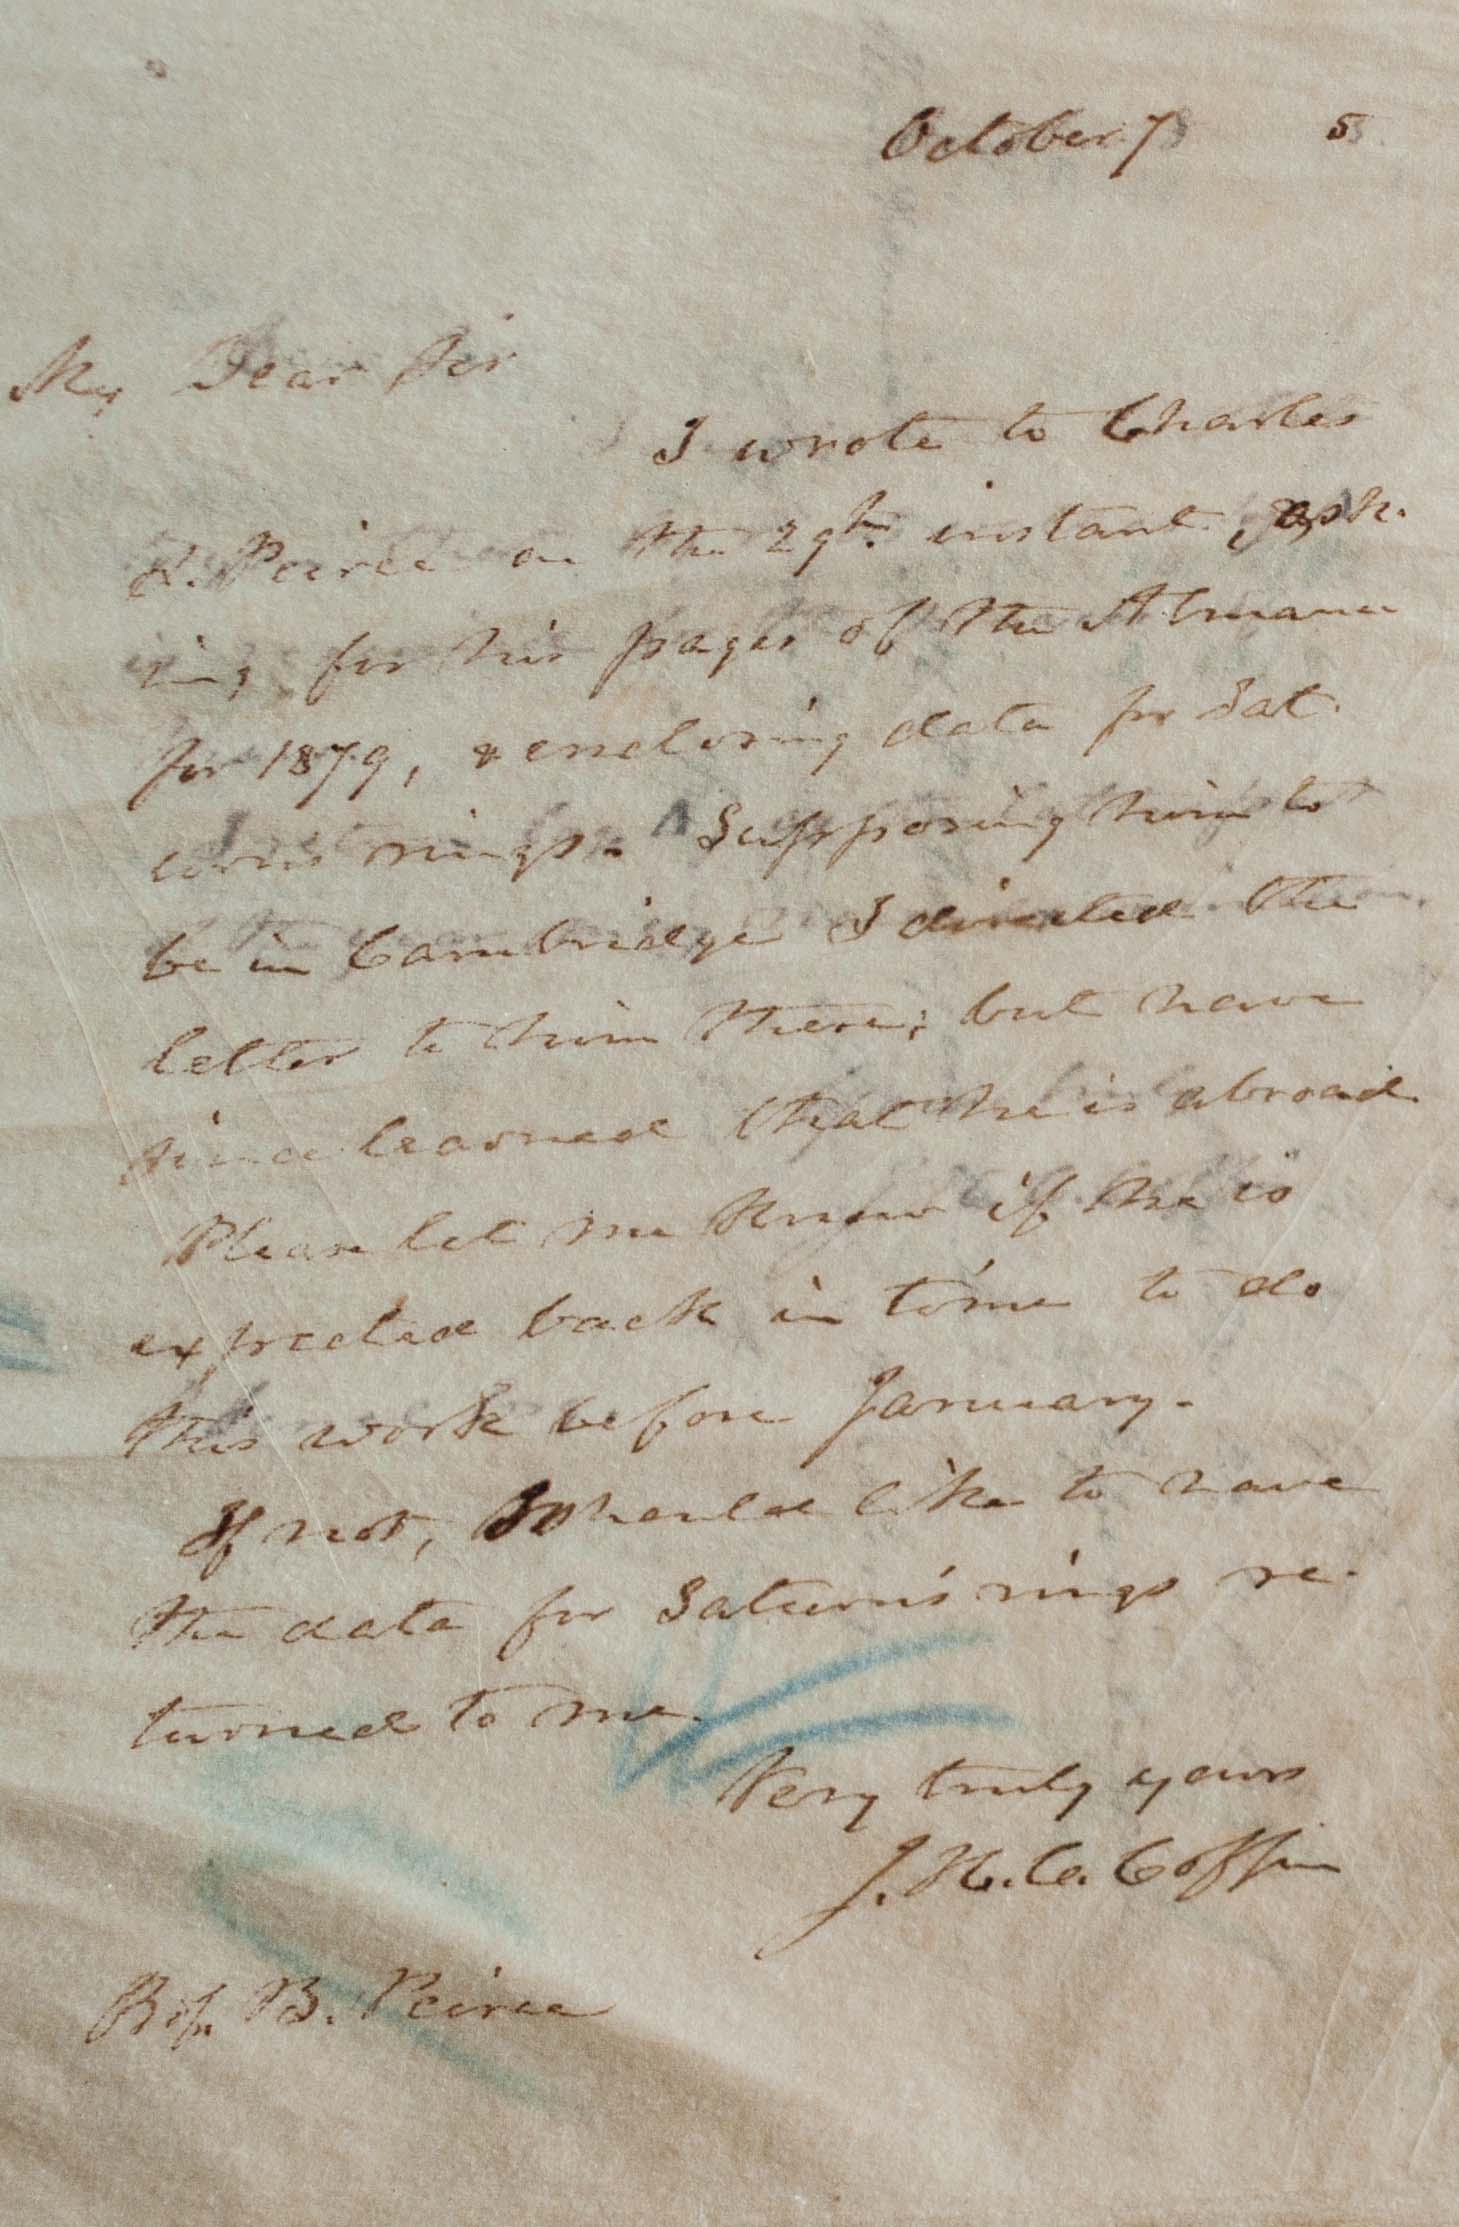 October 7 5
My Dear Sir
I wrote to Charles
S. Peirce on the 29th. instant, ask-
ing for his pages of the Almanac
for 1879, & enclosing data for Sat-
urn's rings. Supposing him to
be in Cambridge I directed the
letter to him there; but have
since learned that he is abroad.
Please let me know if he is
expected back in time to do
this work before January.
If not, I should like to have
the data for Saturn's rings re-
turned to me.
Very truly yours
J. H. C. Coffin
Prof. B. Peirce